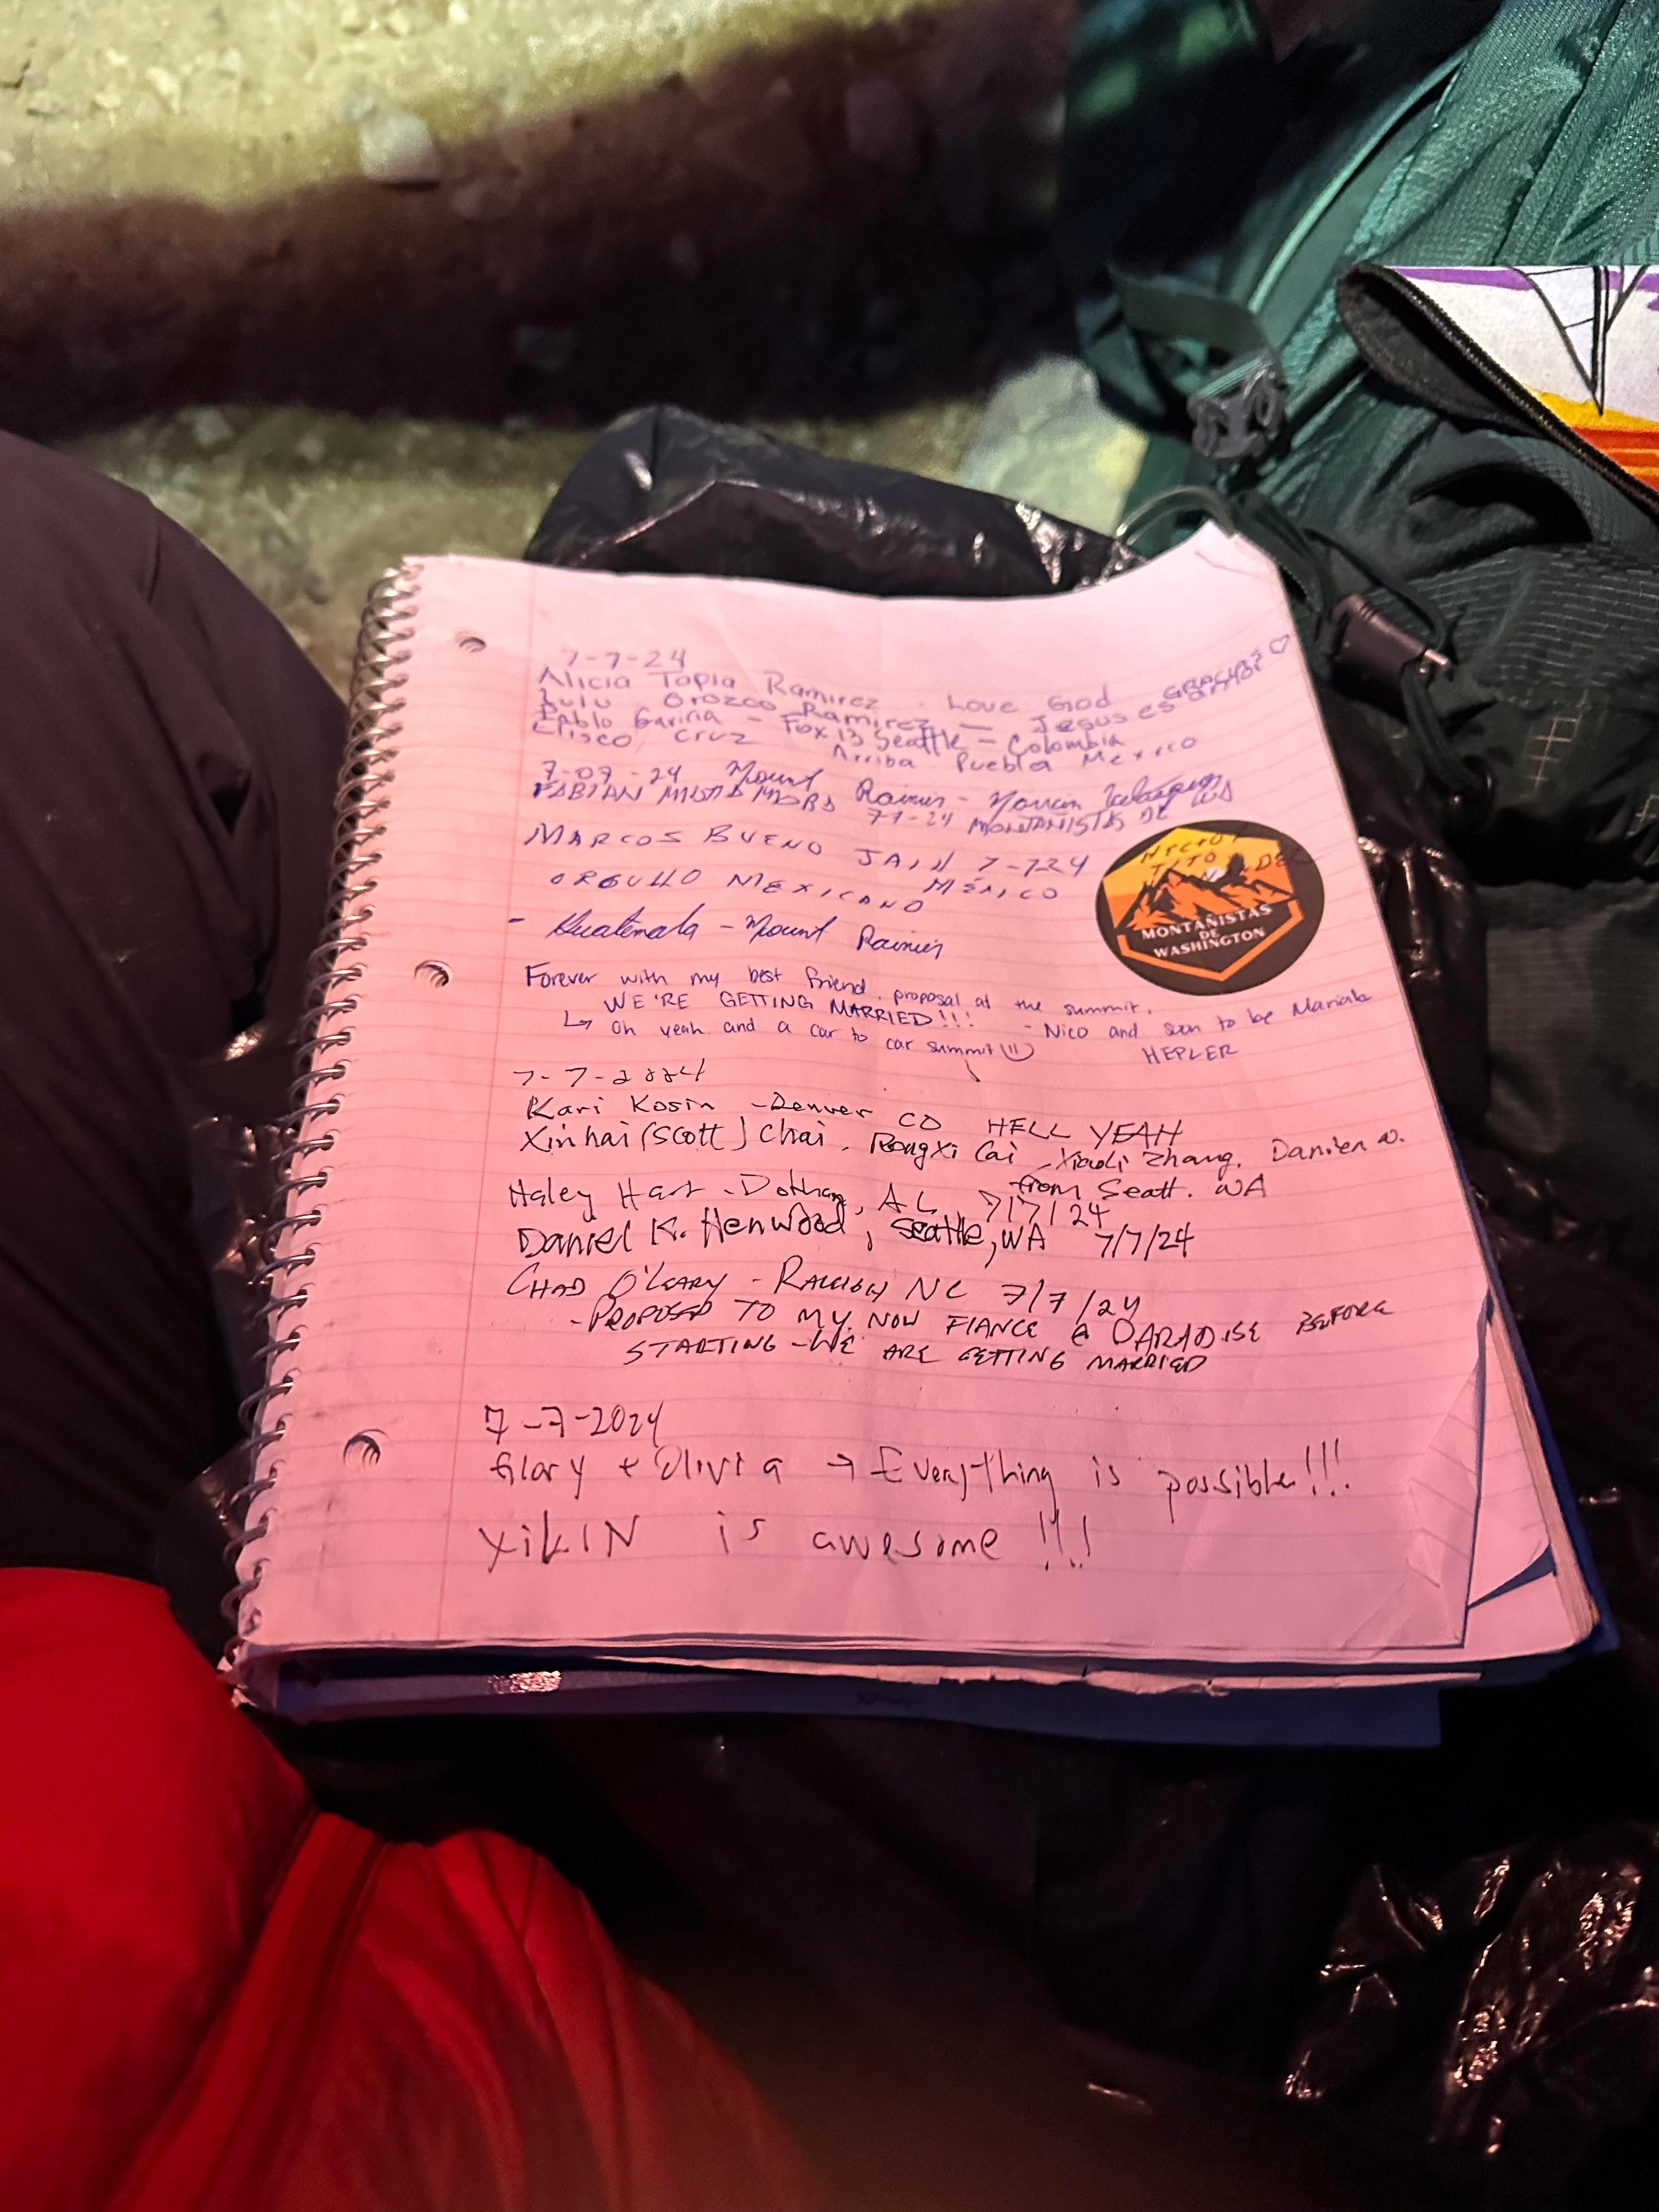 7-7-24
Alicia Tapia Ramirez - Love God
Lulu Orozco Ramirez — Jesus es amor GRACIAS ♡
Pablo Gaviria - Fox 13 Seattle - Colombia
Crisco Cruz Arriba Puebla Mexico
7-07-24 Mount Rainier -
FABIAN 7-7-24 MONTAÑISTAS DE WA
MARCOS BUENO 7-7-24
ORGULLO MEXICANO MÉXICO
- Guatemala - Mount Rainier
TITO
MONTAÑISTAS
DE
WASHINGTON
Forever with my best friend, proposal at the summit.
WE'RE GETTING MARRIED!!! - Nico and soon to be Mariah
↳ Oh yeah and a car to car summit HEPLER
7-7-2024
Kari Kosin - Denver CO HELL YEAH
Xinhai (Scott) Chai, Rongxi Cai, Xiaoli Zhang, Damien W.
from Seatt. WA
Haley Hart - Dothan, AL 7/7/24
Daniel K. Henwood, Seattle, WA 7/7/24
CHAD O'LEARY - RALEIGH NC 7/7/24
- PROPOSED TO MY NOW FIANCE @ PARADISE BEFORE
STARTING - WE ARE GETTING MARRIED
7-7-2024
Glory + Olivia → Everything is possible!!!
YiKIN is awesome!!!